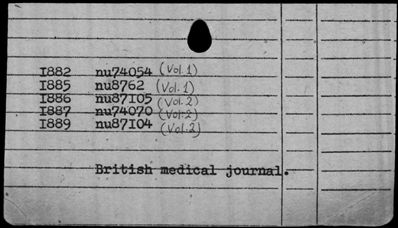 1882 nu74054 (Vol. 1)
1885 nu8762 (Vol. 1)
1886 nu87105 (Vol. 2)
1887 nu74070 (Vol. 2)
1889 nu87104 (Vol. 2)
British medical journal.